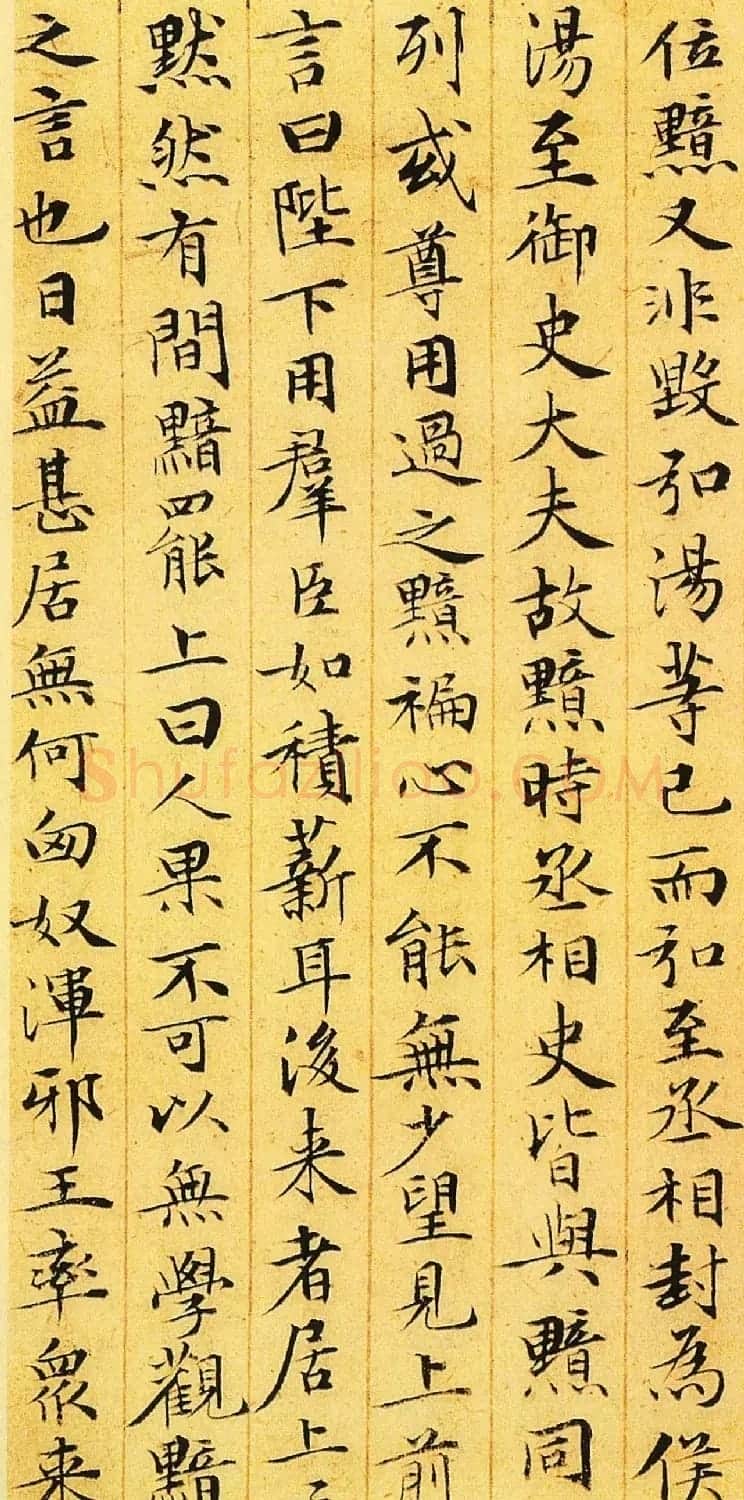 位黯又非毀弘湯等已而弘至丞相封為侯
湯至御史大夫故黯時丞相史皆與黯同
列或尊用過之黯褊心不能無少望見上前
言曰陛下用羣臣如積薪耳後来者居上
黙然有間黯罷上曰人果不可以無學觀黯
之言也日益甚居無何匈奴渾邪王率衆来
Shufaziliao.COM